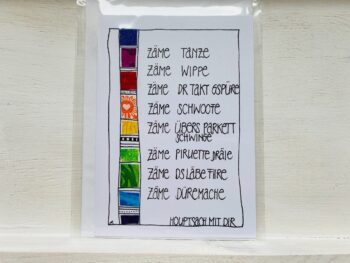 ZÄME TANZE
ZÄME WIPPE
ZÄME DR TAKT GSPÜRE
ZÄME SCHWOOFE
ZÄME ÜBERS PARKETT
SCHWINGE
ZÄME PIRUETTE DRÄIE
ZÄME DS LÄBE FIIRE
ZÄME DÜREMACHE
HOUPTSACH MIT DIR